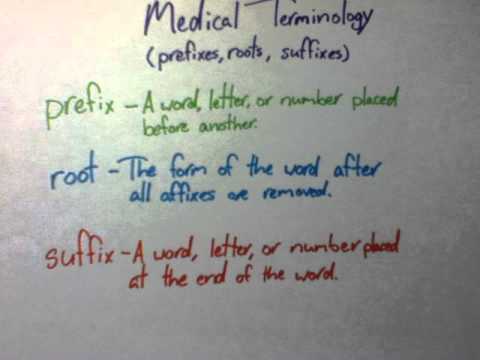 Medical Terminology
(prefixes, roots, suffixes)
prefix - A word, letter, or number placed
before another.
root - The form of the word after
all affixes are removed.
suffix - A word, letter, or number placed
at the end of the word.